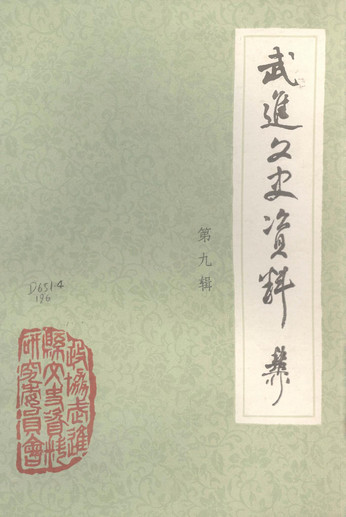 武進文史资料
第九辑
D651.4
196
政协武進
縣文史資料
研究委員會